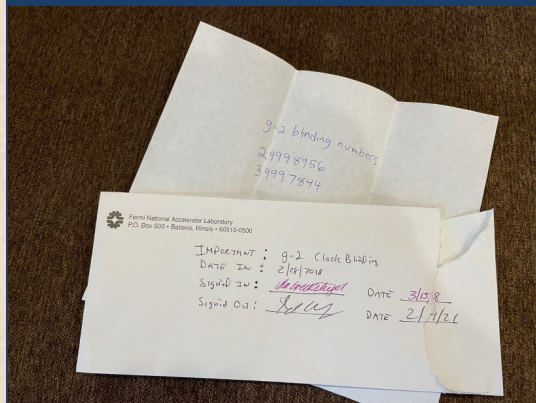 g-2 blinding numbers
29998956
39997844
Fermi National Accelerator Laboratory
P.O. Box 500 • Batavia, Illinois • 60510-0500
IMPORTANT : g-2 Clock Blinding
DATE IN : 2/28/2018
Signed IN : DATE
Signed Out : DATE